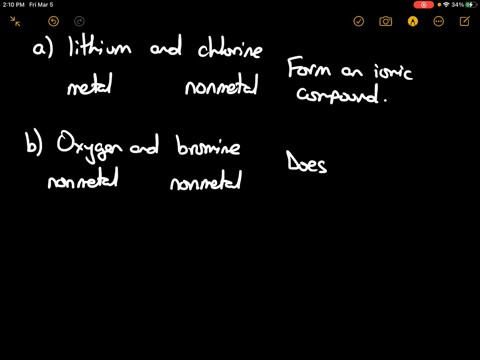 2:10 PM Fri Mar 5
34%
a) lithium and chlorine
metal nonmetal
Form an ionic
compound.
b) Oxygen and bromine
nonmetal nonmetal
Does